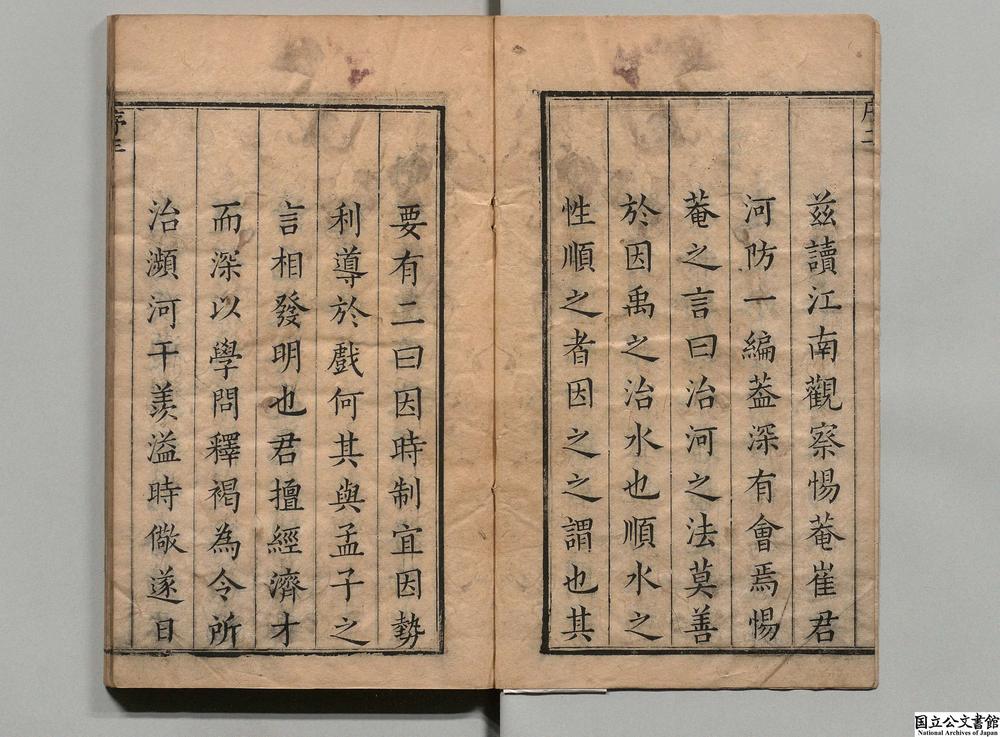 序二
茲讀江南觀察惕菴崔君
河防一編葢深有會焉惕
菴之言曰治河之法莫善
於因禹之治水也順水之
性順之者因之之謂也其
要有二曰因時制宜因勢
利導於戲何其與孟子之
言相發明也君擅經濟才
而深以學問釋褐為令所
治瀕河干羨溢時儆遂日
序三
国立公文書館
National Archives of Japan